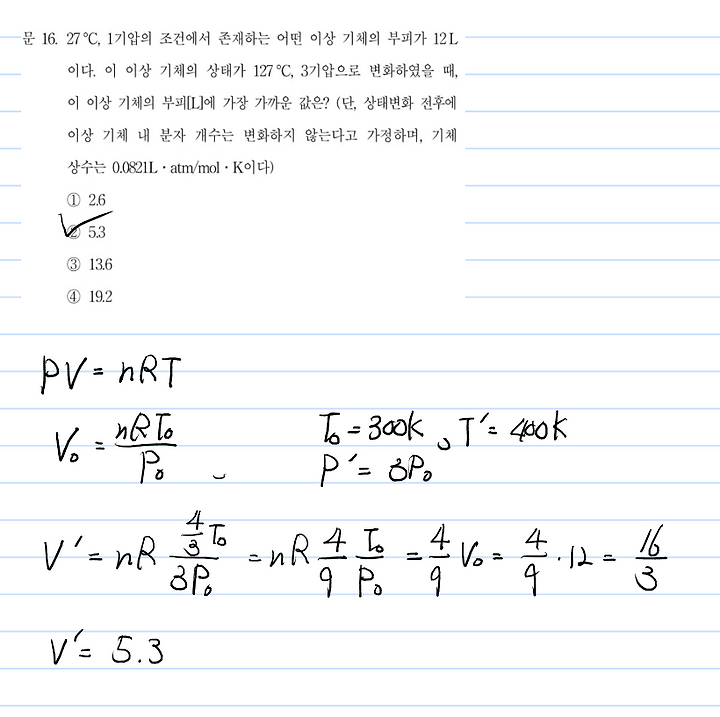 문 16. 27℃, 1기압의 조건에서 존재하는 어떤 이상 기체의 부피가 12 L
이다. 이 이상 기체의 상태가 127℃, 3기압으로 변화하였을 때,
이 이상 기체의 부피[L]에 가장 가까운 값은? (단, 상태변화 전후에
이상 기체 내 분자 개수는 변화하지 않는다고 가정하며, 기체
상수는 0.0821L・atm/mol・K이다)
① 2.6
② 5.3
③ 13.6
④ 19.2
PV = nRT
V₀ = nRT₀/P₀ , T₀ = 300K, T′ = 400K
P′ = 3P₀
V′ = nR (4/3 T₀)/(3P₀) = nR 4/9 T₀/P₀ = 4/9 V₀ = 4/9 · 12 = 16/3
V′ = 5.3